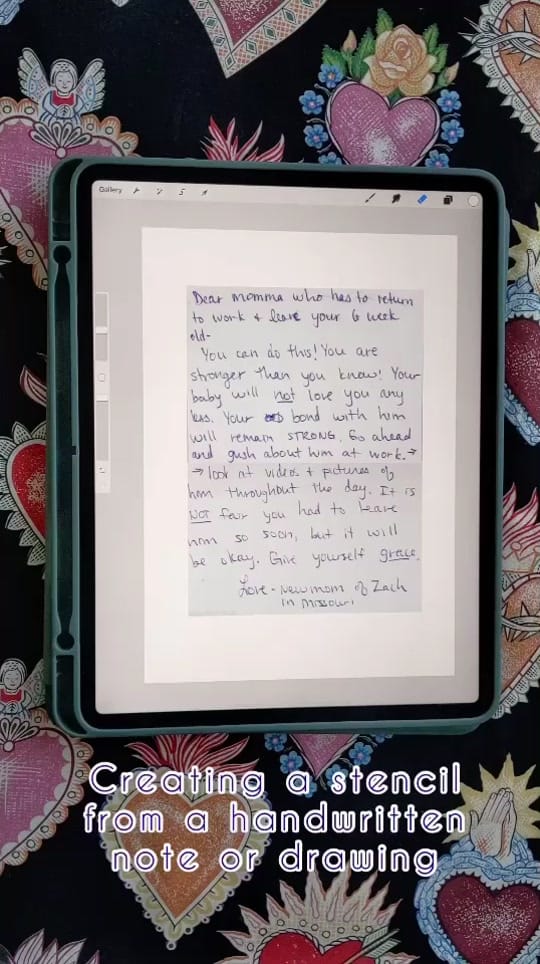 Gallery
Dear momma who has to return
to work + leave your 6 week
old-
You can do this! You are
stronger than you know! Your
baby will not love you any
less. Your bond with him
will remain STRONG. Go ahead
and gush about him at work. →
→ look at videos + pictures of
him throughout the day. It is
NOT fair you had to leave
him so soon, but it will
be okay. Give yourself grace.
Love - new mom of Zach
in Missouri
Creating a stencil
from a handwritten
note or drawing